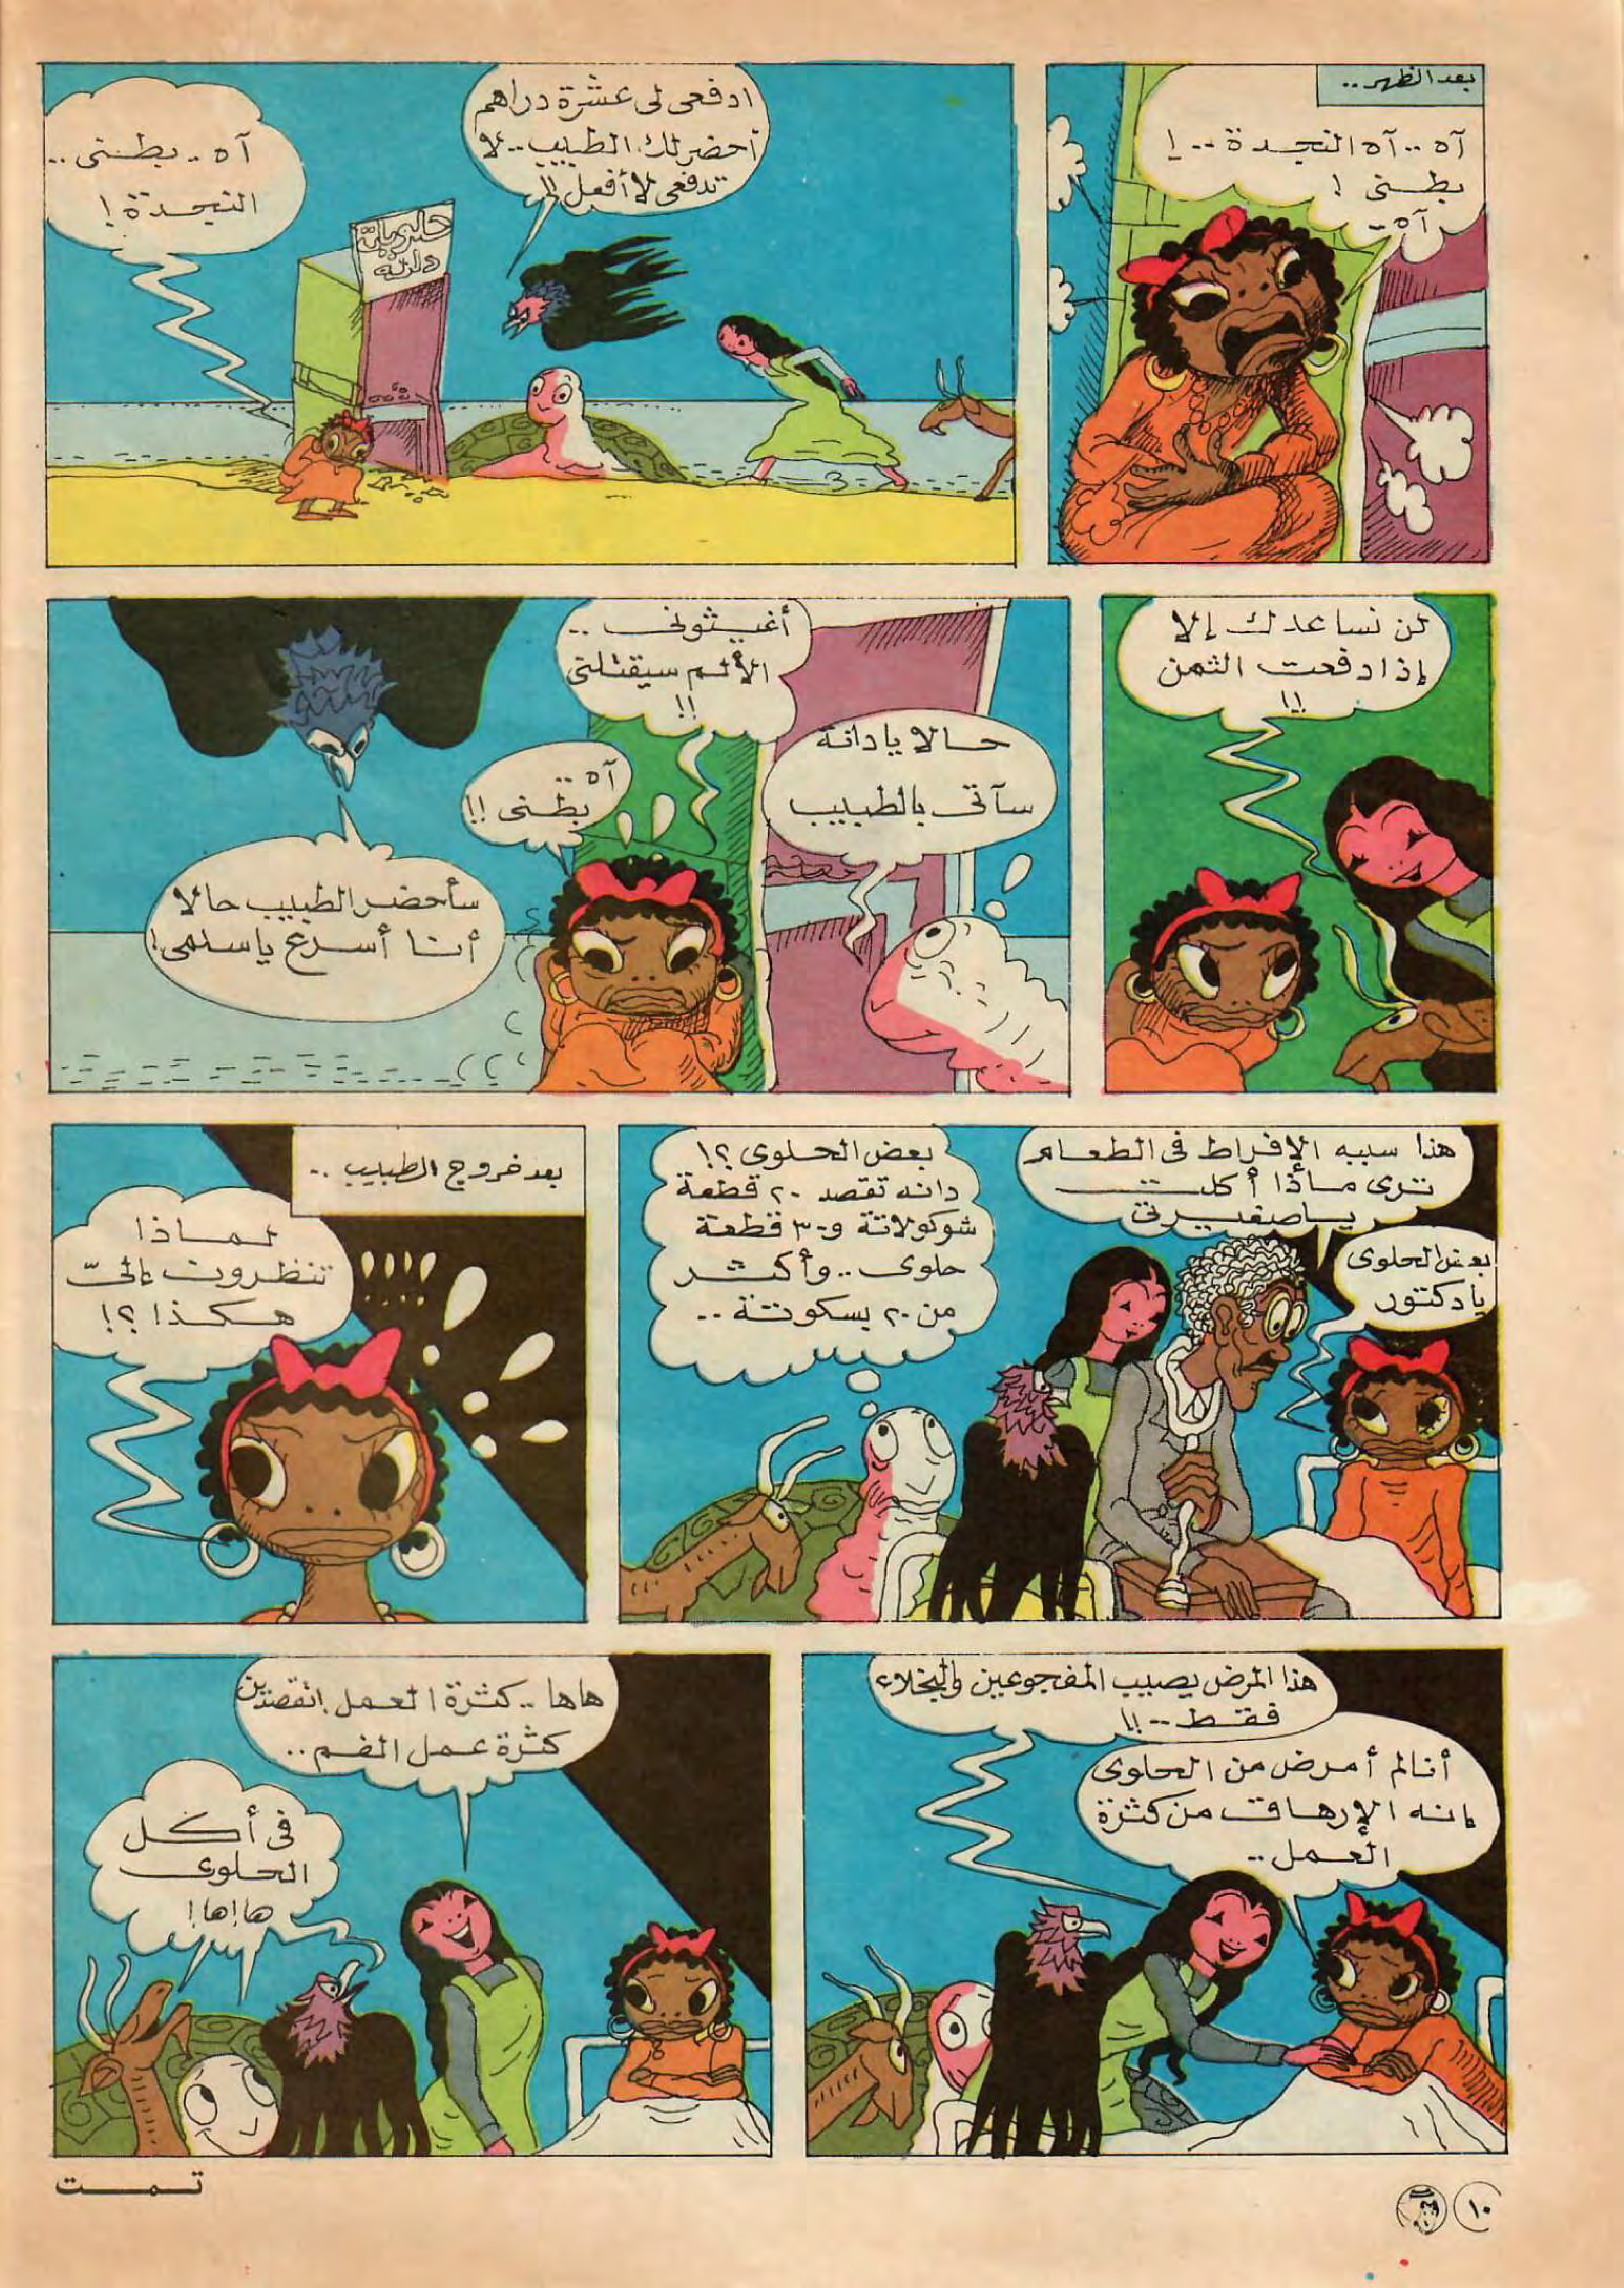 بعد الظهر..
آه .. آه النجدة .. !
بطنى !
آه ..
ادفعى لى عشرة دراهم
أحضر لك الطبيب .. لا
تدفعى لا أفعل !!
آه .. بطنى ..
النجدة !
حلويات
دانه
لن نساعدك إلا
إذا دفعت الثمن
!!
أغيثونى ..
الألم سيقتلنى
!!
حالا يا دانة
سآتى بالطبيب
آه ..
بطنى !!
سأحضر الطبيب حالا
أنا أسرع يا سلمى !
هذا سببه الإفراط فى الطعام
ترى ماذا أكلت
يا صغيرتى
بعض الحلوى
يا دكتور
بعض الحلوى ؟!
دانه تقصد ٢٠ قطعة
شوكولاتة و ٣٠ قطعة
حلوى .. وأكثر
من ٢٠ بسكوتة ..
بعد خروج الطبيب ..
لماذا
تنظرون إلىّ
هكذا ؟!
!!!!
هذا المرض يصيب المفجوعين والبخلاء
فقط .. !!
أنا لم أمرض من الحلوى
إنه الإرهاق من كثرة
العمل ..
ها ها .. كثرة العمل ! تقصدين
كثرة عمل الفم ..
فى أكل
الحلوى
ها ! ها !
تمت
١٠